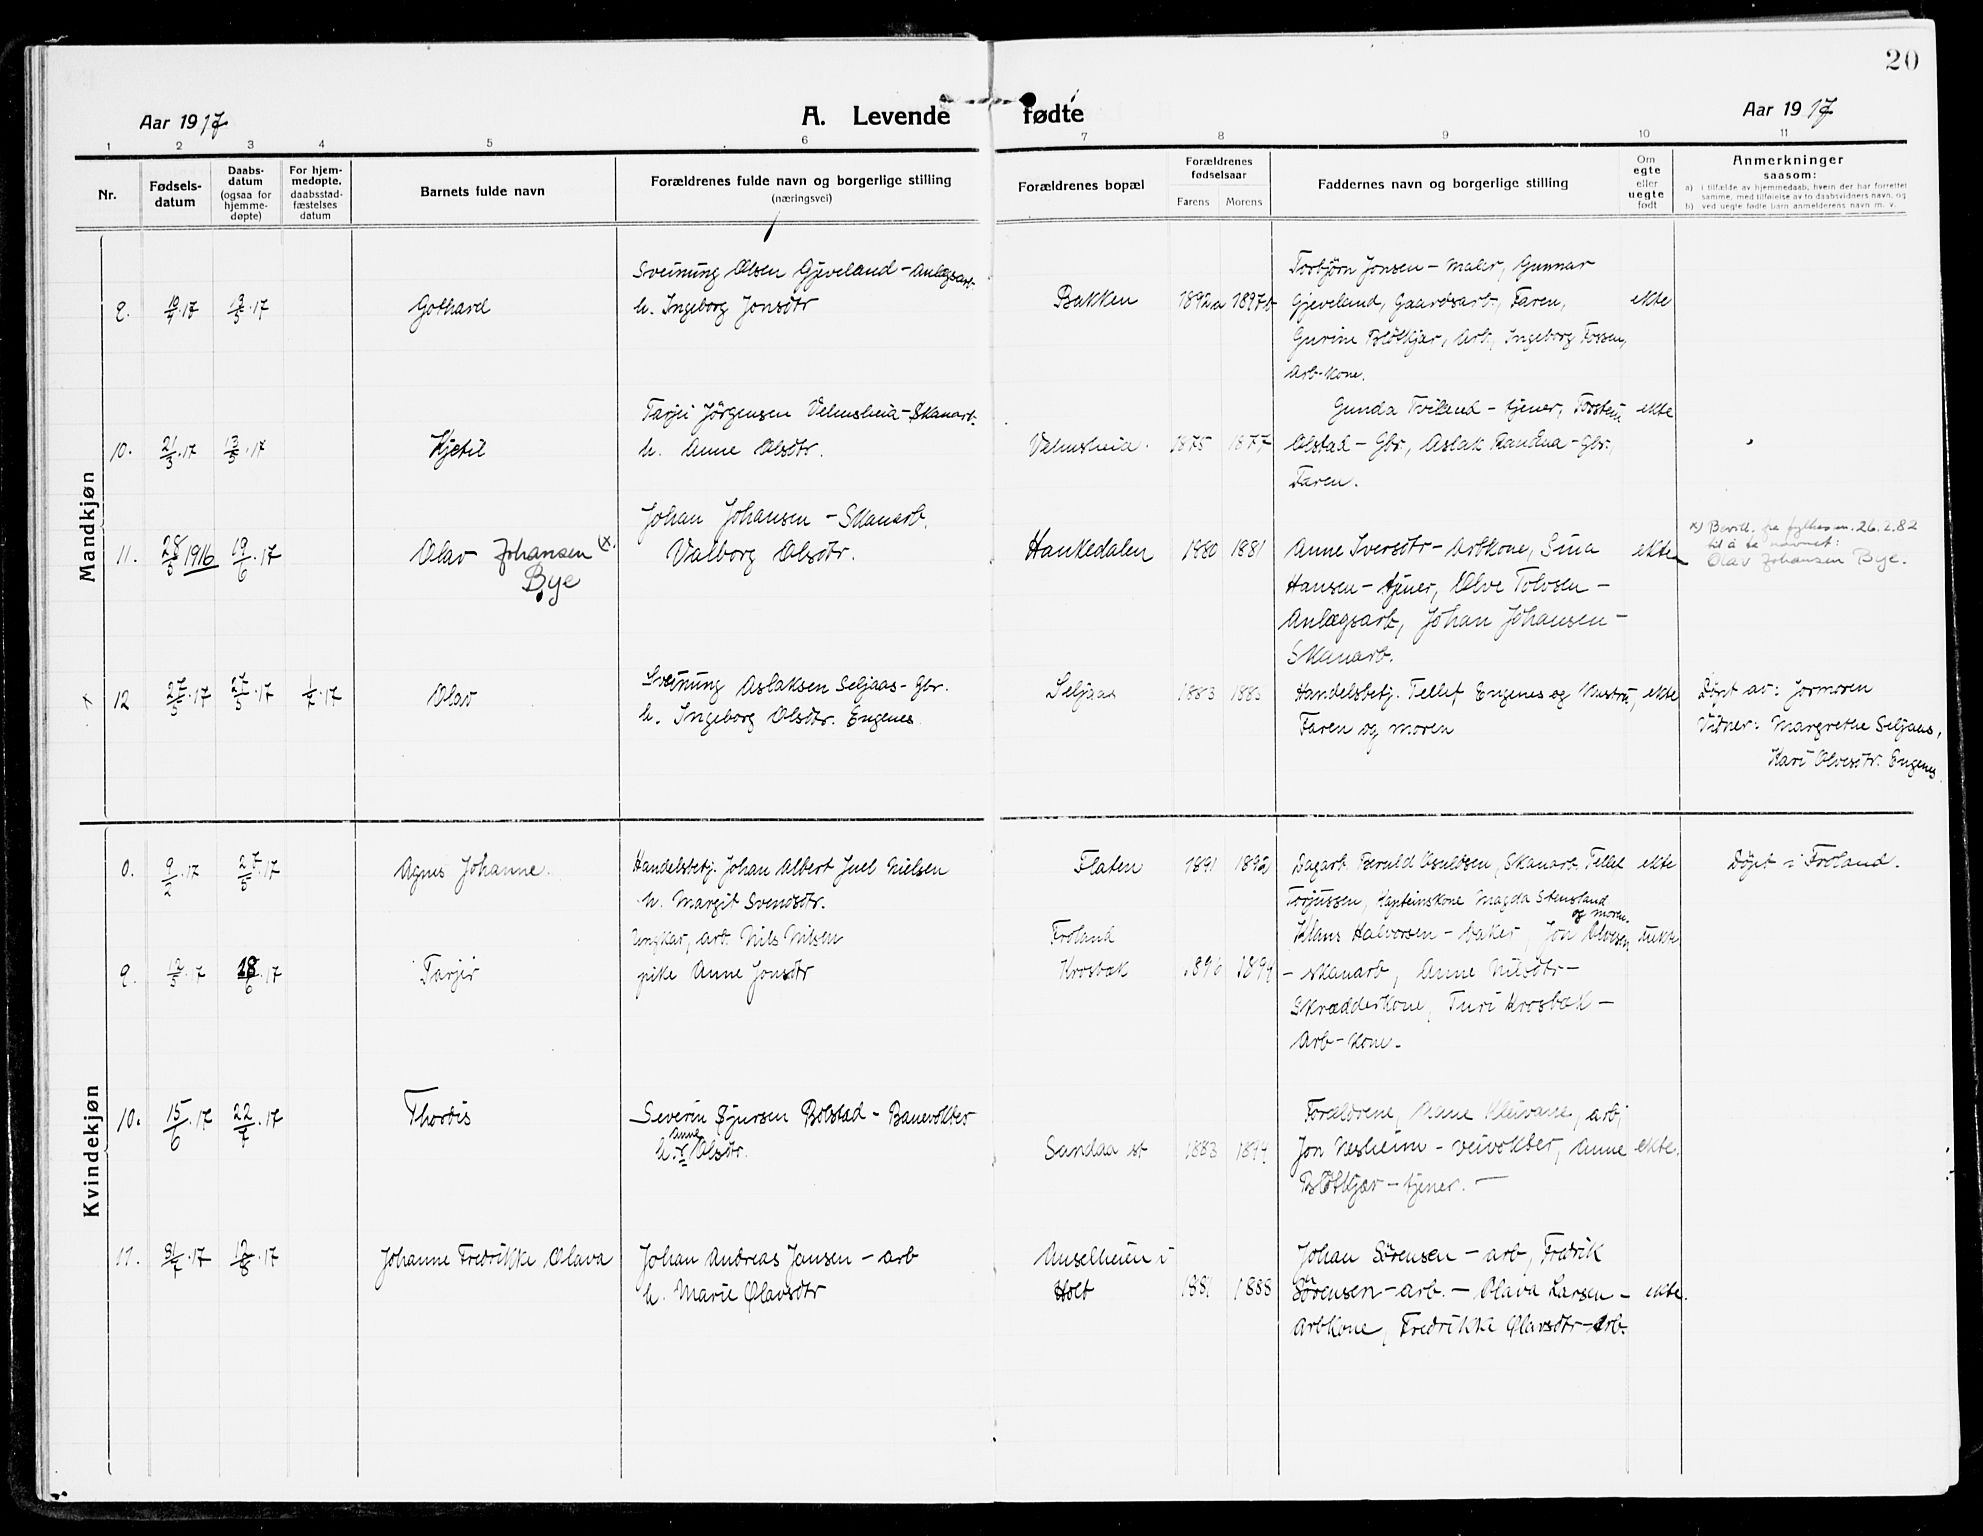 20
Aar 1917
A. Levende fødte
Aar 1917
1 2 3 4 5 6 7 8 9 10 11
Nr.
Fødsels-
datum
Daabs-
datum
(ogsaa for
hjemme-
døpte)
For hjem-
medøpte,
daabsstad-
fæstelses
datum
Barnets fulde navn
Forældrenes fulde navn og borgerlige stilling
(næringsvei)
Forældrenes bopæl
Forældrenes
fødselsaar
Farens Morens
Faddernes navn og borgerlige stilling
Om
egte
eller
uegte
født
Anmerkninger
saasom:
a) i tilfælde av hjemmedaab, hvem der har forrettet
samme, med tilføielse av to daabsvidners navn, og
b) ved uegte fødte barn anmelderens navn m. v.
Mandkjøn
Sveinung Olsen Gjeveland - Anlægsarb.
h. Ingeborg Jonsdtr
Gothard
Bakken
ekte
Torbjørn Jonsen - maler, Gunnar
Gjeveland, Gaardsarb., Faren,
Gurine Bløtkjær, Arb., Ingeborg Fossen,
Arb-kone.
10. 21/3.17 13/5.17
Kjetil
Tarjei Jörgensen Velmsheia - Skanarb.
h. Anne Olsdtr.
Velmsheia. 1875 1877
Gunda Tviland - tjener, Torstein ekte
Olstad - Gbr., Aslak - Gbr.,
Faren.
11. 28/5 1916 19/6.17
Olav Johansen (x.
Bye
Johan Johansen - Skanarb.
Valborg Olsdtr.
Hankedalen 1880 1881
Anne Iversdtr - Arbkone, Sina ekte
Hansen - tjener, Olve Tolvsen -
Anlægsarb, Johan Johansen -
Skanarb.
x) Bevill. fra fylkesm. 26.2.82
til å ta navnet:
Olav Johansen Bye.
12 27/5.17 27/5.17 1/7.17
Olav
Sveinung Aslaksen Seljaas - Gbr.
h. Ingeborg Olsdtr. Engenes
Seljaas 1883 1885
Handelsbetj. Tellef Engenes og Hustru, ekte
Faren og moren
Døpt av: Jormoren
Vidner: Margrethe Seljaas,
Kari Olvesdtr. Engenes
Kvindekjøn
9/2.17 27/5.17
Agnes Johanne.
Handelsbetj. Johan Albert Juel Nielsen
h. Margit Svendsdtr.
Flaten 1891 1892
Dagarb. Osuldsen, Skanarb. Tellef ekte
Torjussen, Kapteinskone Magda Stensland
og moren.
Døpt i Froland.
9. 12/5.17 18/6.17
Tarjei
Ungkar, arb. Nils Nilsen
pike Anne Jonsdtr
Froland
Krosbak 1896
Klaus Halvorsen - baker, Jon Olvesen, uekte
- skanarb, Anne Nilsdtr -
Skrædderkone, Turi Krosbæk -
Arb-kone.
10. 15/6.17 22/7.17
Thordis
Severin Sjursen Bolstad - Banevokter
h. Anne Olsdtr.
Sandaa st 1883 1894
Forældrene, Kleivane, arb,
Jon Nesheim - veivokter, Anne ekte.
Bløtkjær - tjener. -
11. 31/7.17 12/8.17
Johanne Fredrikke Olava
Johan Andreas Jansen - arb
h. Marie Olavsdtr
Anselheien i
Holt 1881 1888
Johan Sørensen - arb, Fredrik
Sørensen - arb. - Olava Larsen - ekte.
Arbkone, Fredrikke Olavsdtr - arb.